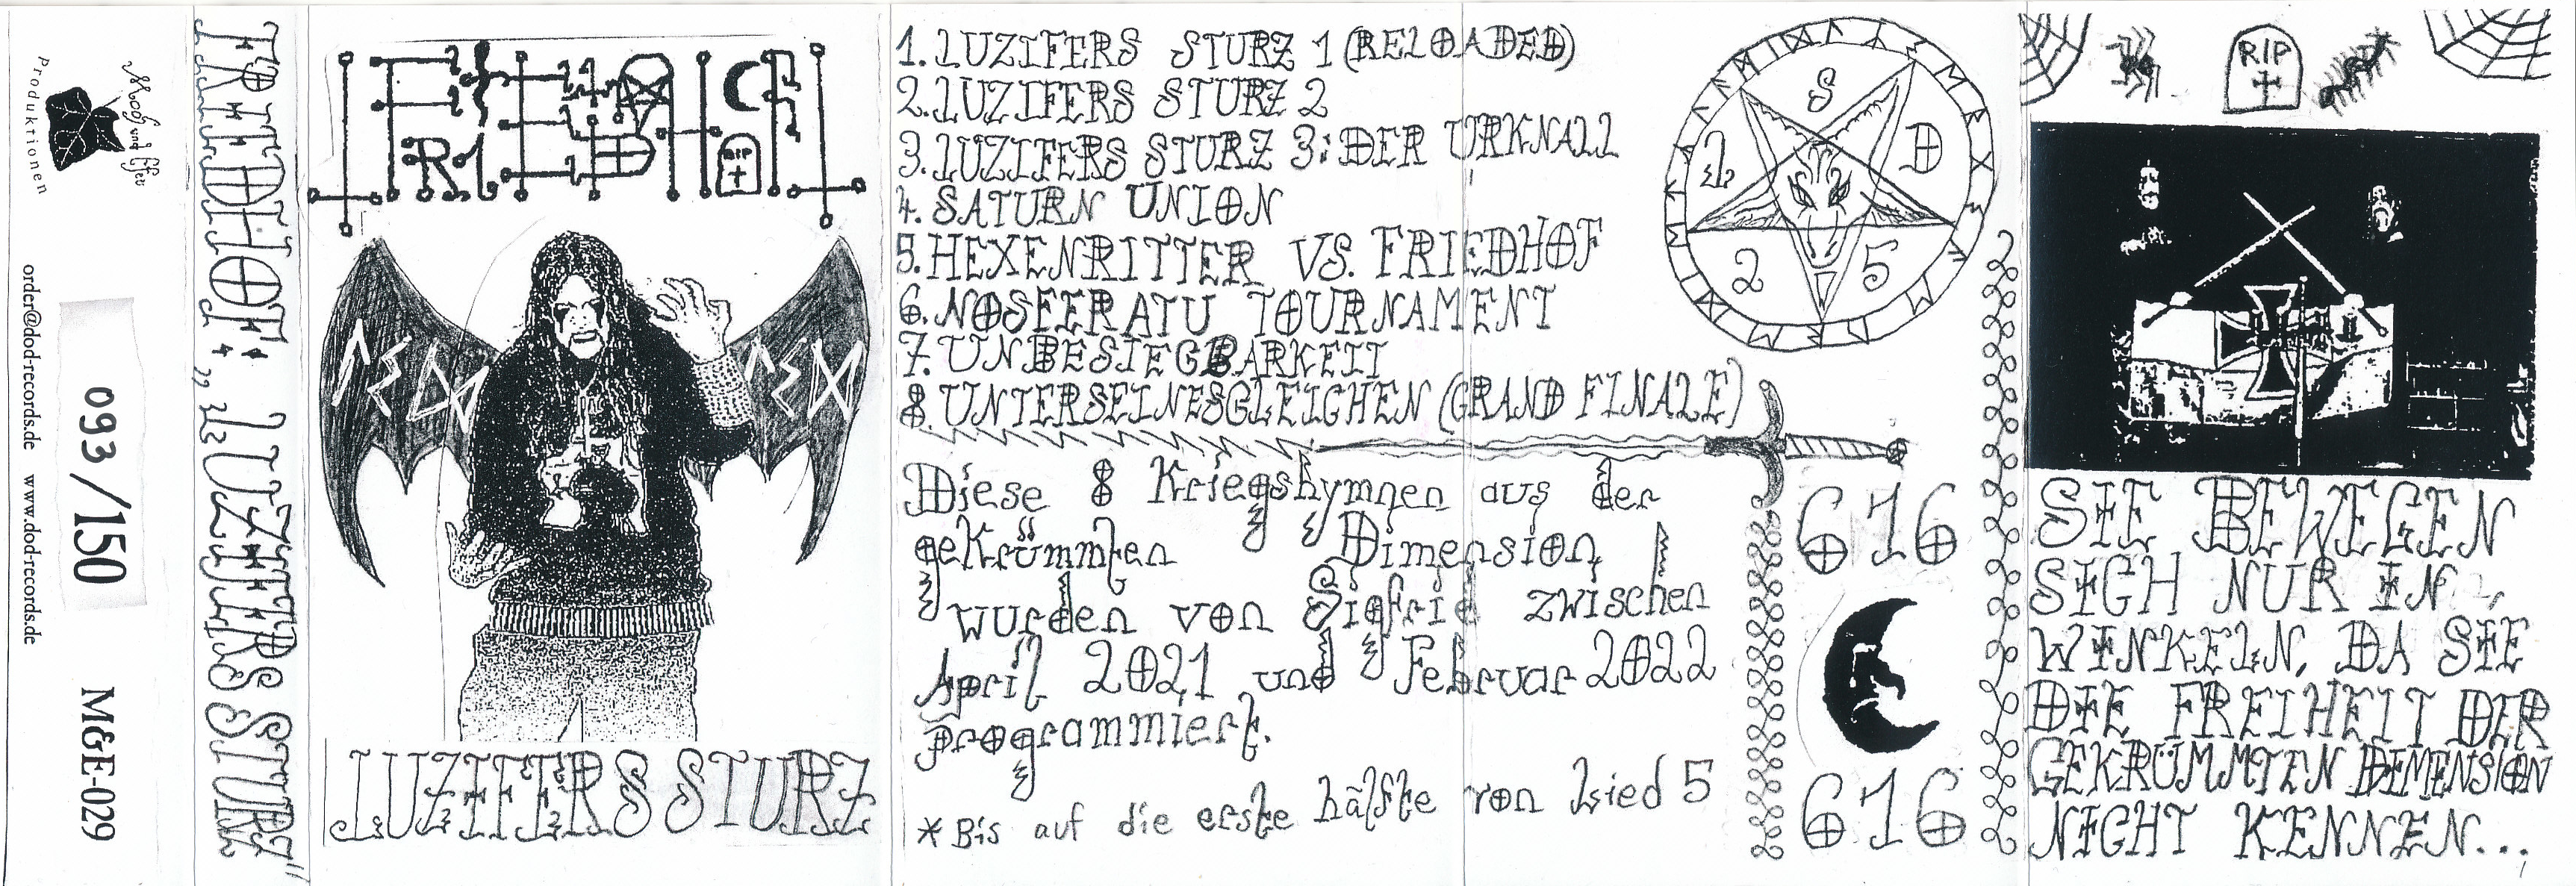 Moos und Efeu
Produktionen
order@dod-records.de www.dod-records.de
093/150
MGE-029
FRIEDHOF: „LUZIFERS STURZ"
FRIEDHOF
RIP
LUZIFERS STURZ
1. LUZIFERS STURZ 1 (RELOADED)
2. LUZIFERS STURZ 2
3. LUZIFERS STURZ 3: DER URKNALL
4. SATURN UNION
5. HEXENRITTER VS. FRIEDHOF
6. NOSFERATU TOURNAMENT
7. UNBESIEGBARKEIT
8. UNTERSEINESGLEICHEN (GRAND FINALE)
Diese 8 Kriegshymnen aus der
gekrümmten Dimension
wurden von Sigfrie zwischen
April 2021 und Februar 2022
programmiert.
*Bis auf die erste hälfte von Lied 5
S
L D
2 5
616
616
RIP
SIE BEWEGEN
SICH NUR IN
WINKELN, DA SIE
DIE FREIHEIT DER
GEKRÜMMTEN DIMENSION
NICHT KENNEN...